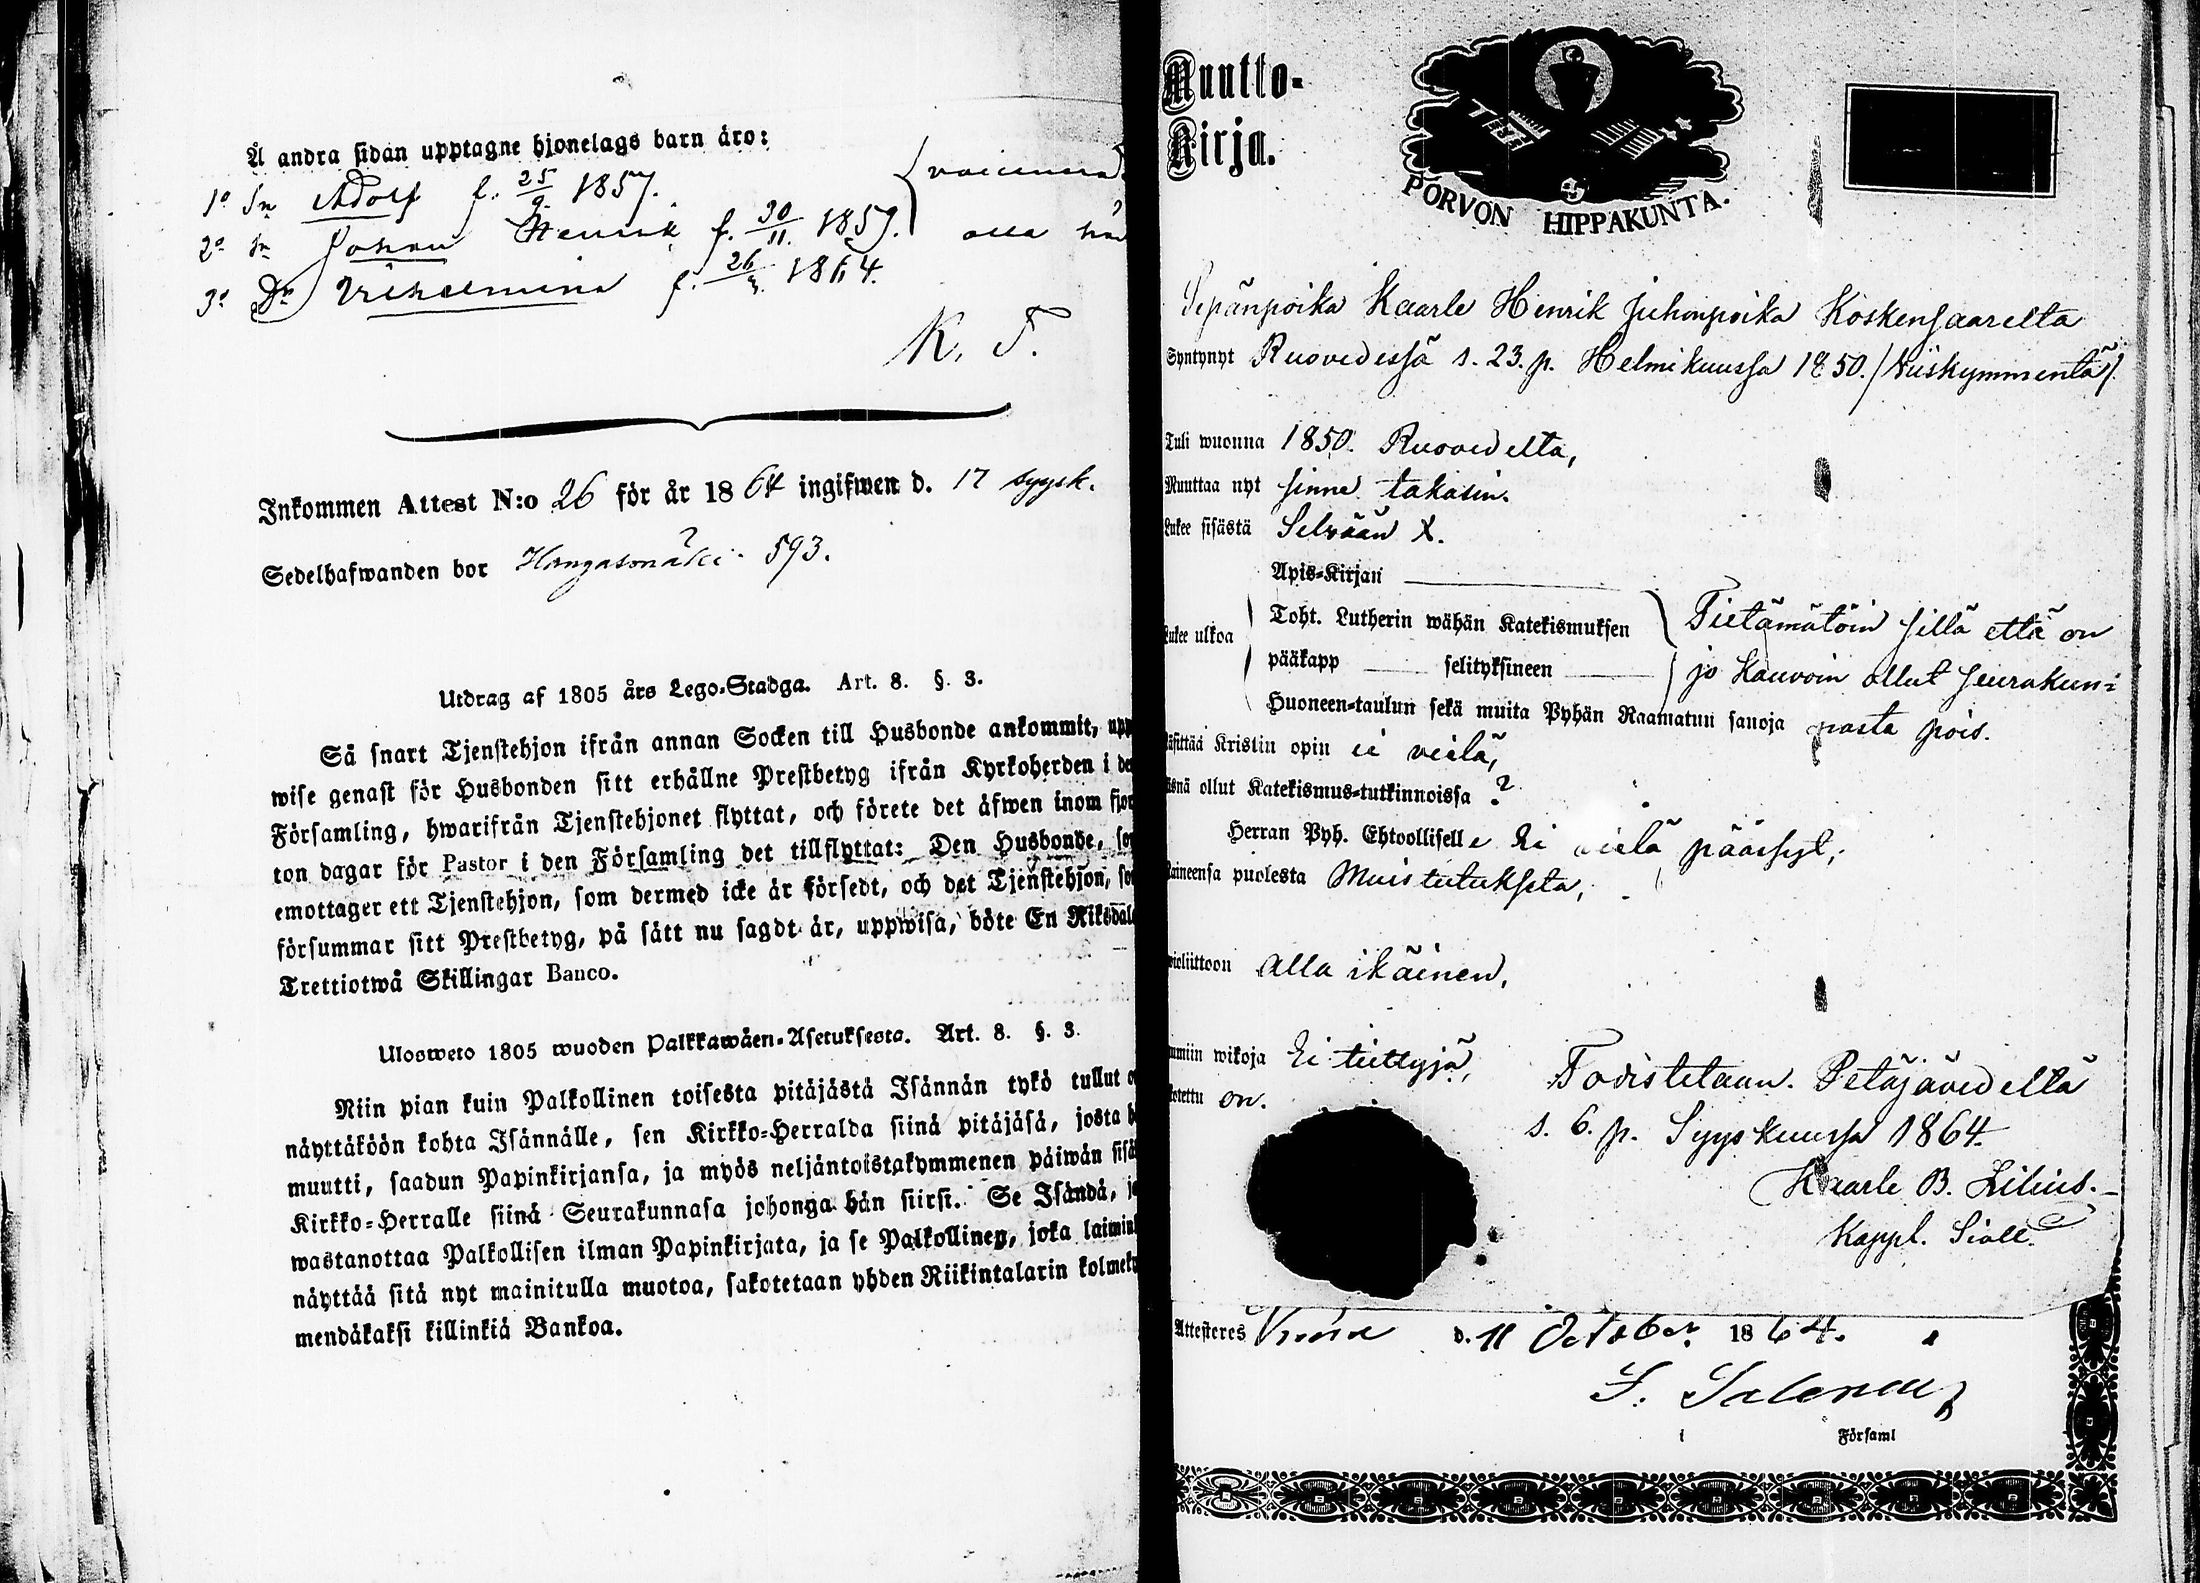 Å andra sidan upptagne hjonelags barn äro:
1o Sn Adolf f. 25/9. 1857.
2o Sn Johan Henrik f. 30/11. 1859.
3o Dr Vilhelmina f. 26/3. 1864.
K. F.
Inkommen Attest N:o 26 för år 1864 ingifwen d. 17 syysk.
Sedelhafwanden bor Hangasmäki 593.
Utdrag af 1805 års Lego-Stadga. Art. 8. §. 3.
Så snart Tjenstehjon ifrån annan Socken till Husbonde ankommit, upp
wise genast för Husbonden sitt erhållne Prestbetyg ifrån Kyrkoherden i de
Församling, hwarifrån Tjenstehjonet flyttat, och förete det äfwen inom fjor
ton dagar för Pastor i den Församling det tillflyttat: Den Husbonde, so
emottager ett Tjenstehjon, som dermed icke är försedt, och det Tjenstehjon, so
försummar sitt Prestbetyg, på sätt nu sagdt är, uppwisa, böte En Riksdale
Trettiotwå Skillingar Banco.
Ulosweto 1805 wuoden Palkkawäen-Asetuksesta. Art. 8. §. 3.
Niin pian kuin Palkollinen toisesta pitäjästä Isännän tykö tullut o
näyttäköön kohta Isännälle, sen Kirkko-Herralda siinä pitäjäsä, josta h
muutti, saadun Papinkirjansa, ja myös neljäntoistakymmenen päiwän sisä
Kirkko-Herralle siinä Seurakunnasa johonga hän siirsi. Se Isändä, jo
wastanottaa Palkollisen ilman Papinkirjata, ja se Palkollinen, joka laimin
näyttää sitä nyt mainitulla muotoa, sakotetaan yhden Riikintalarin kolmeky
mendäkaksi killinkiä Bankoa.
Muutto-
Kirja.
PORVON HIPPAKUNTA.
Sepänpoika Kaarle Henrik Juhonpoika Koskensaarelta
Syntynyt Ruovedessä s. 23. p. Helmikuussa 1850. /Viiskymmentä/.
Tuli wuonna 1850. Ruovedelta,
Muuttaa nyt sinne takasin.
Lukee sisästä Selvään X.
Apis-Kirjan
Lukee ulkoa
Toht. Lutherin wähän Katekismuksen
pääkapp selityksineen
Huoneen-taulun sekä muita Pyhän Raamatun sanoja
Tietämätöin sillä että on
jo kauvoin ollut seurakun-
nasta pois.
äsittää Kristin opin ei vielä,
äsnä ollut Katekismus-tutkinnoissa ?
Herran Pyh. Ehtoollisella Ei vielä päässyt,
Maineensa puolesta Muistutukseta,
wioliittoon alla ikäinen,
umiin wikoja Ei tiettyjä,
kotettu on.
Todistetaan. Petäjävedeltä
s. 6. p. Syyskuussa 1864.
Kaarle B. Lilius.
Kappl. Siall.
Attesteres d. 11 October 1864.
i Församl